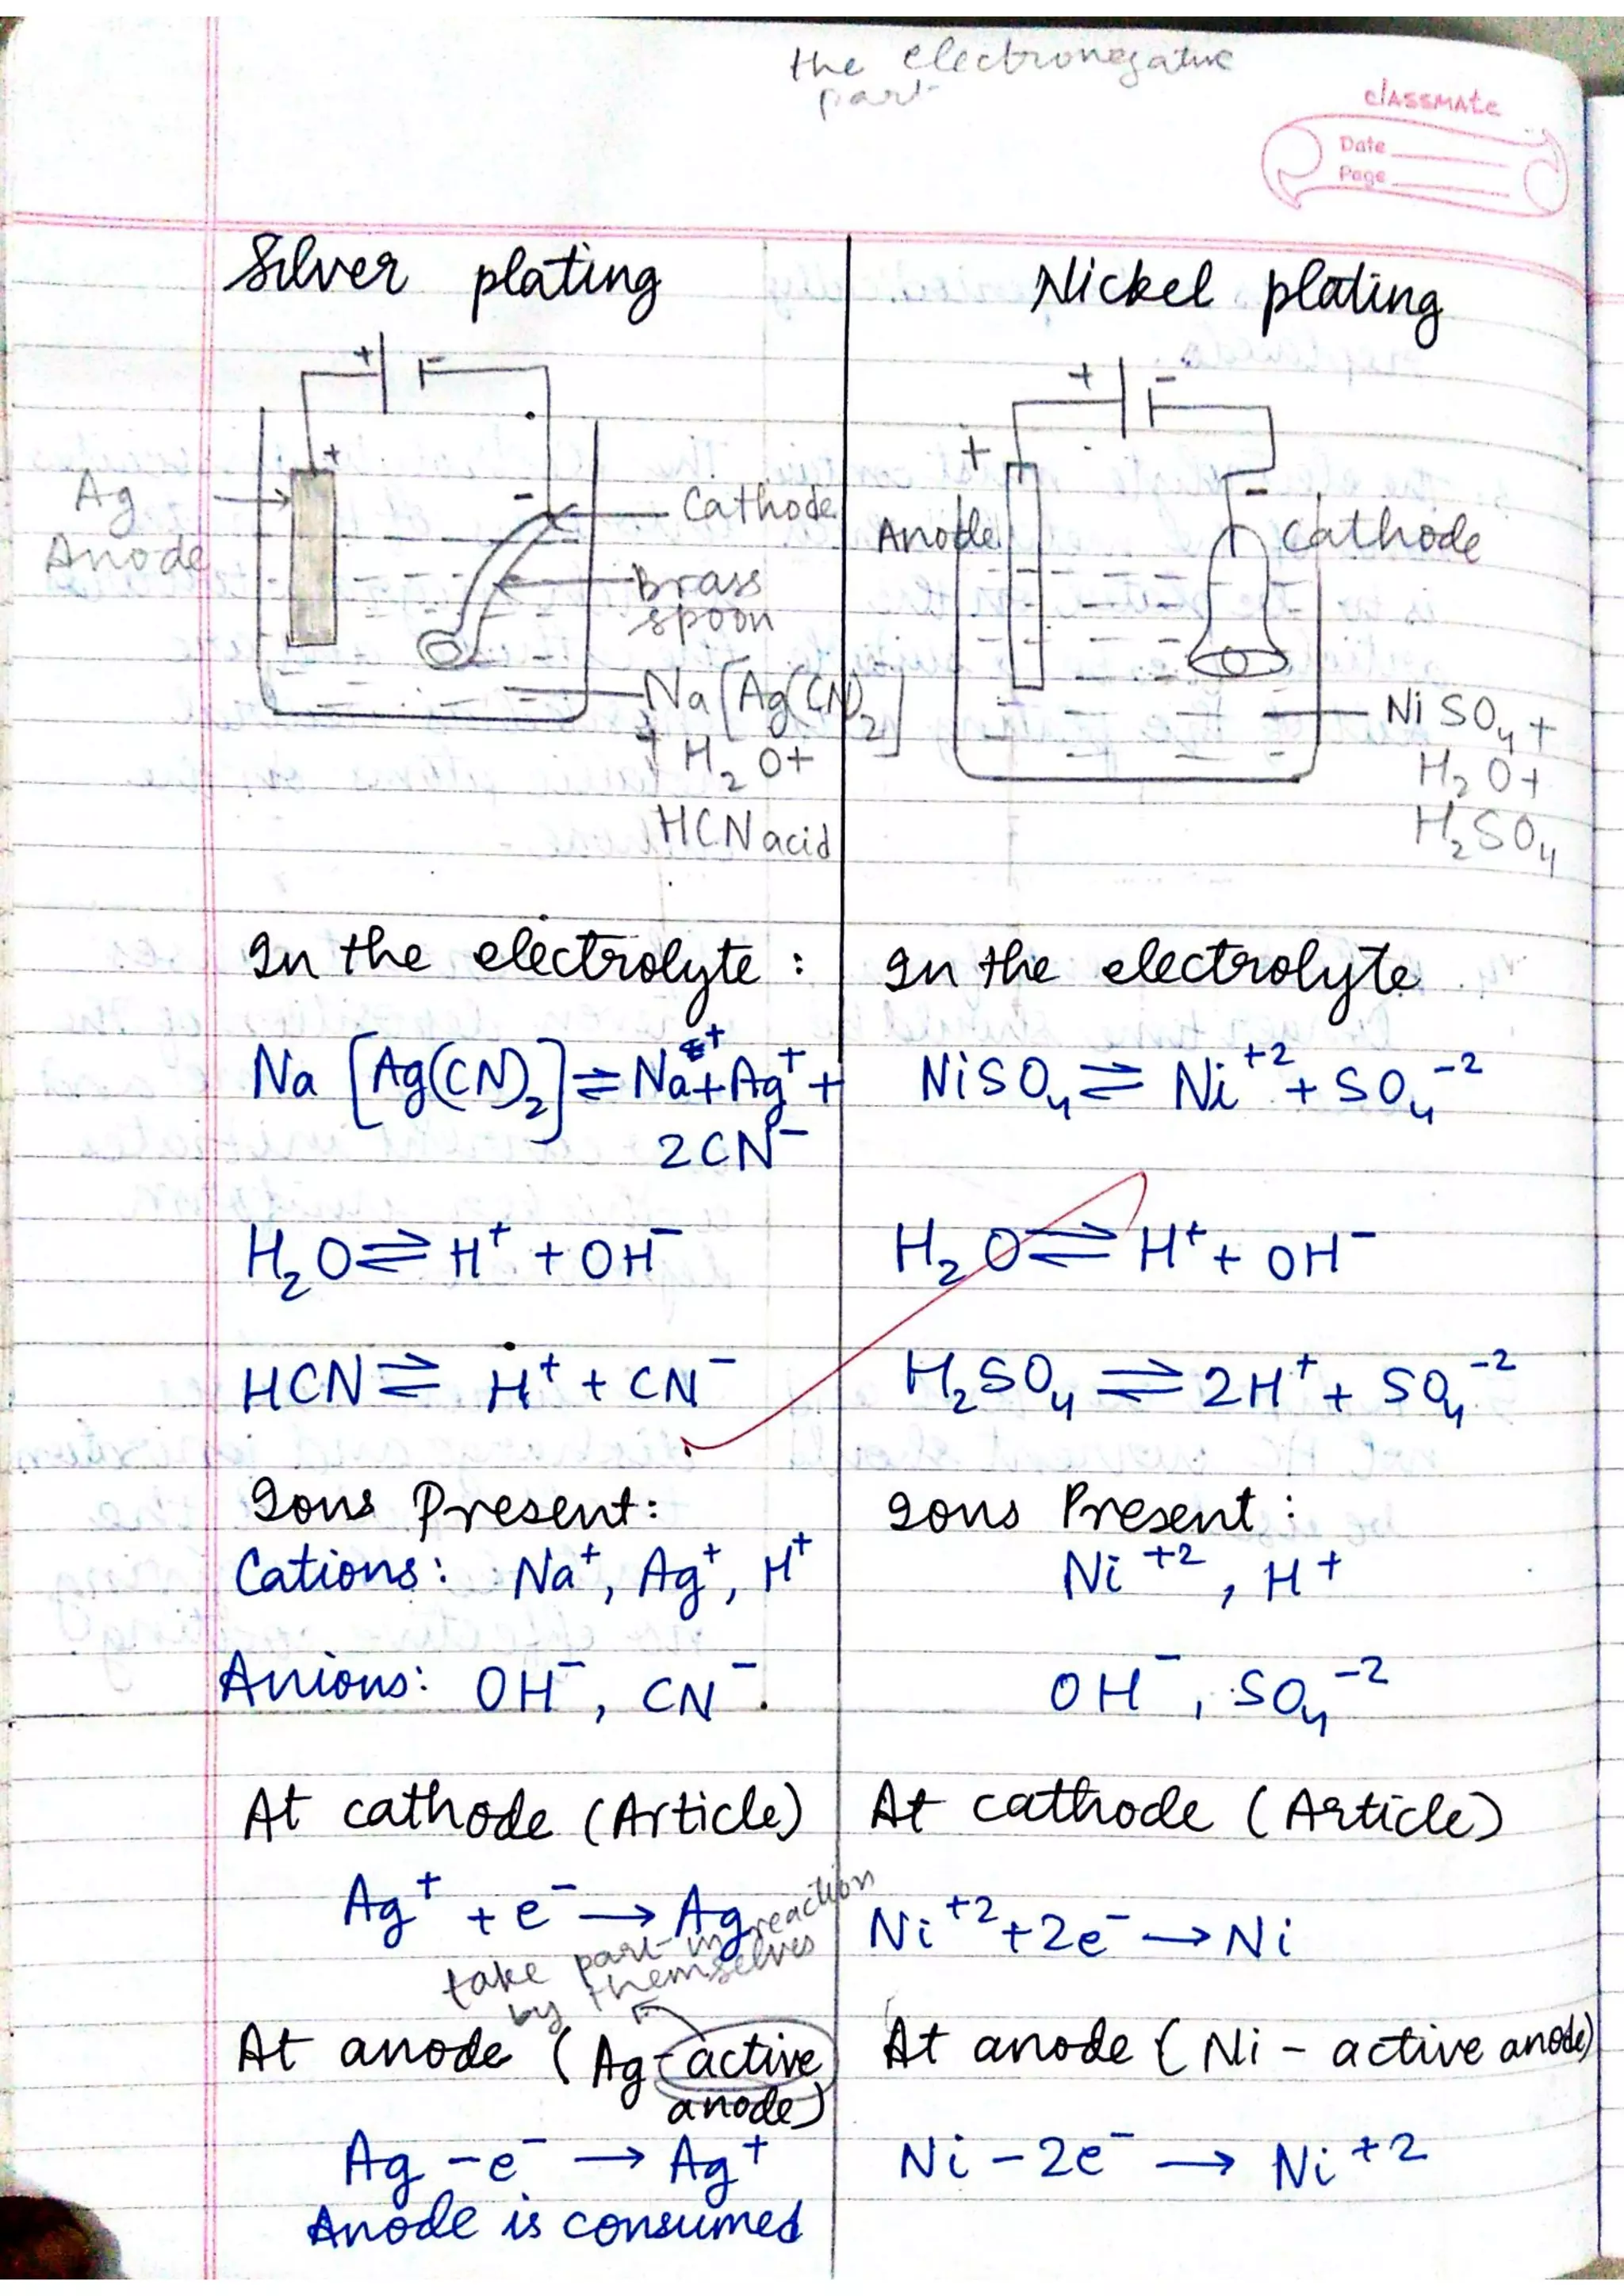 the electronegative
part
classmate
Date
Page
Silver plating
+ -
+
Ag
Anode
-
Cathode
Brass
spoon
Na[Ag(CN)₂]
+ H₂O+
HCN acid
In the electrolyte :
Na [Ag(CN)₂] ⇌ Na⁺ + Ag⁺ +
2CN⁻
H₂O ⇌ H⁺ + OH⁻
HCN ⇌ H⁺ + CN⁻
Ions Present:
Cations: Na⁺, Ag⁺, H⁺
Anions: OH⁻, CN⁻.
At cathode (Article)
Ag⁺ + e⁻ → Ag
take part in reaction
by themselves
At anode (Ag-active
anode)
Ag - e⁻ → Ag⁺
Anode is consumed
Nickel plating
+ -
+
Anode
-
Cathode
NiSO₄ +
H₂O+
H₂SO₄
In the electrolyte
NiSO₄ ⇌ Ni⁺² + SO₄⁻²
H₂O ⇌ H⁺ + OH⁻
H₂SO₄ ⇌ 2H⁺ + SO₄⁻²
Ions Present :
Ni⁺², H⁺
OH⁻, SO₄⁻²
At cathode (Article)
Ni⁺² + 2e⁻ → Ni
At anode (Ni - active anode)
Ni - 2e⁻ → Ni⁺²